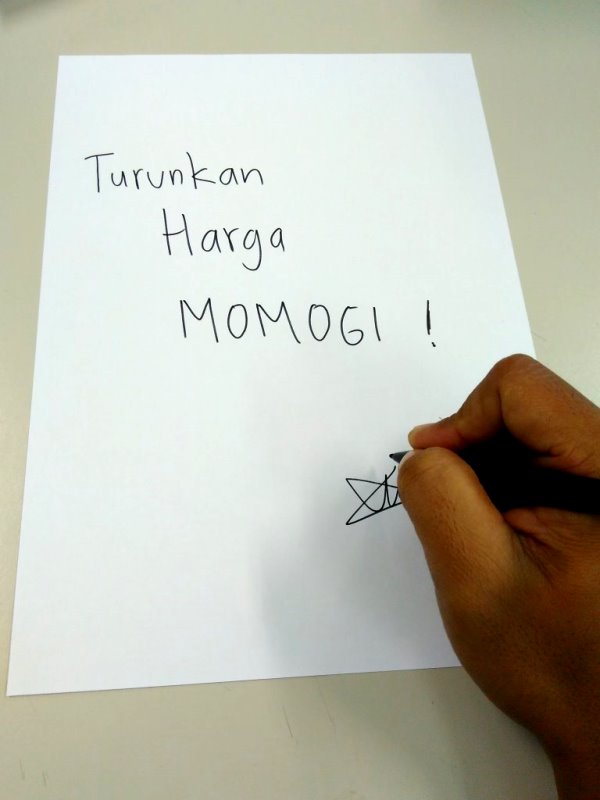 Turunkan
Harga
MOMOGI !